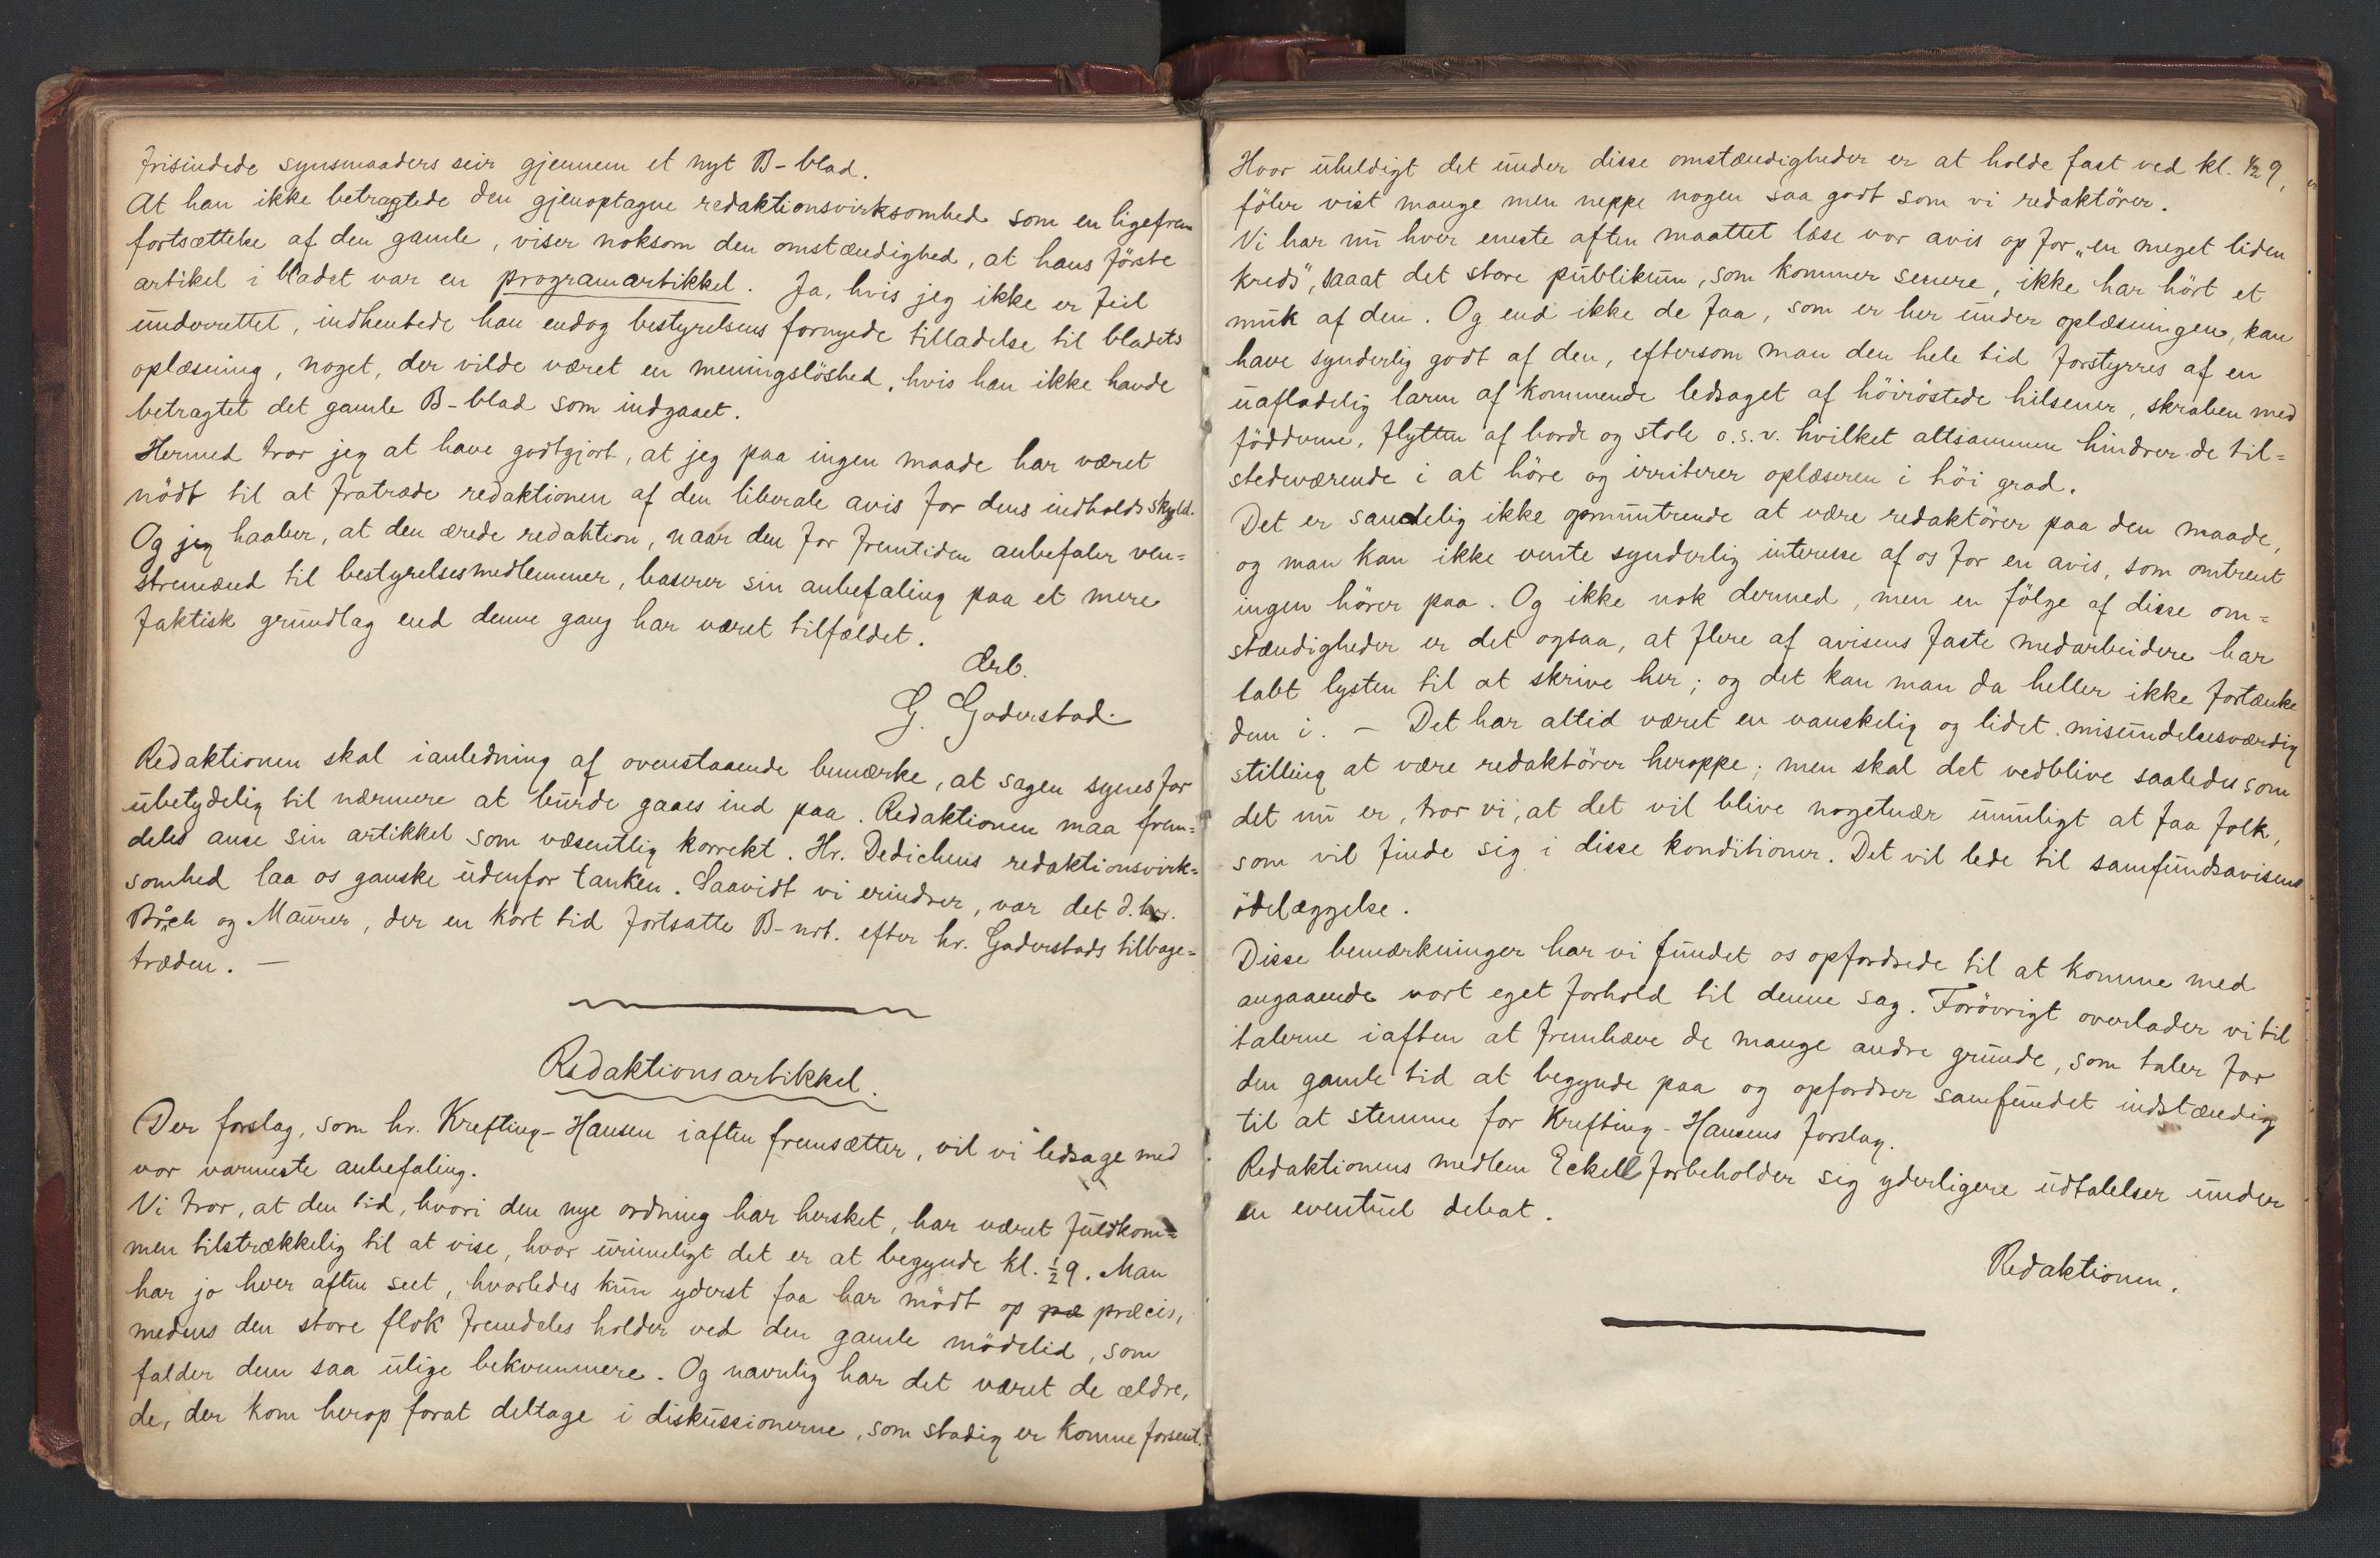 frisindede synsmaaders seir gjennem et nyt B-blad.
At han ikke betragtede den gjenoptagne redaktionsvirksomhed som en ligefrem
fortsættelse af den gamle, viser noksom den omstændighed, at hans förste
artikel i bladet var en programartikkel. Ja, hvis jeg ikke er feil
underrettet, indhentede han endog bestyrelsens fornyede tilladelse til bladets
oplæsning, noget, der vilde været en meningslöshed, hvis han ikke havde
betragtet det gamle B-blad som indgaaet.
Hermed tror jeg at have godtgjort, at jeg paa ingen maade har været
nödt til at fratræde redaktionen af den liberale avis for dens indholds skyld.
Og jeg haaber, at den ærede redaktion, naar den for fremtiden anbefaler ven=
stremænd til bestyrelsesmedlemmer, baserer sin anbefaling paa et mere
faktisk grundlag end denne gang har været tilfældet.
Ærb.
G. Gaderstad.
Redaktionen skal ianledning af ovenstaaende bemærke, at sagen synes for
ubetydelig til nærmere at burde gaaes ind paa. Redaktionen maa frem=
deles anse sin artikkel som væsentlig korrekt. Hr. Dedichens redaktionsvirk=
somhed laa os ganske udenfor tanken. Saavidt vi erindrer, var det d. hrr.
og Maurer, der en kort tid fortsatte B-nrt. efter hr. Gaderstads tilbage=
træden. —
Redaktionsartikkel.
Der forslag, som hr. Krefting-Hansen iaften fremsætter, vil vi ledsage med
vor varmeste anbefaling.
Vi tror, at den tid, hvori den nye ordning har hersket, har været fuldkom=
men tilstrækkelig til at vise, hvor urimeligt det er at begynde kl. ½9. Man
har jo hver aften seet, hvorledes kun yderst faa har mödt op pæ præcis,
medens den store flok fremdeles holder ved den gamle mödetid, som
falder dem saa ulige bekvemmere. Og navnlig har det været de ældre,
de, der kom herop forat deltage i diskussionerne, som stadig er komne forsent.
Hvor uheldigt det under disse omstændigheder er at holde fast ved kl. ½9,
föler vist mange men neppe nogen saa godt som vi redaktörer.
Vi har nu hver eneste aften maattet læse vor avis op for „en meget liden
kreds", saaat det store publikum, som kommer senere, ikke har hört et
muk af den. Og end ikke de faa, som er her under oplæsningen, kan
have synderlig godt af den, eftersom man den hele tid forstyrres af en
uafladelig larm af kommende ledsaget af höiröstede hilsener, skraben med
födderne, flytten af borde og stole o.s.v. hvilket altsammen hindrer de til=
stedeværende i at höre og irriterer oplæseren i höi grad.
Det er sandelig ikke opmuntrende at være redaktörer paa den maade,
og man kan ikke vente synderlig interesse af os for en avis, som omtrent
ingen hörer paa. Og ikke nok dermed, men en fölge af disse om=
stændigheder er det ogsaa, at flere af avisens faste medarbeidere har
tabt lysten til at skrive her; og det kan man da heller ikke fortænke
dem i. — Det har altid været en vanskelig og lidet misundelsesværdig
stilling at være redaktörer heroppe; men skal det vedblive saaledes som
det nu er, tror vi, at det vil blive nogetnær umuligt at faa folk,
som vil finde sig i disse konditioner. Det vil lede til samfundsavisens
ödelæggelse.
Disse bemærkninger har vi fundet os opfordrede til at komme med
angaaende vort eget forhold til denne sag. Forövrigt overlader vi til
talerne iaften at fremhæve de mange andre grunde, som taler for
den gamle tid at begynde paa og opfordrer samfundet indstændig
til at stemme for Krefting-Hansens forslag.
Redaktionens medlem Eckell forbeholder sig yderligere udtalelser under
en eventuel debat.
Redaktionen.